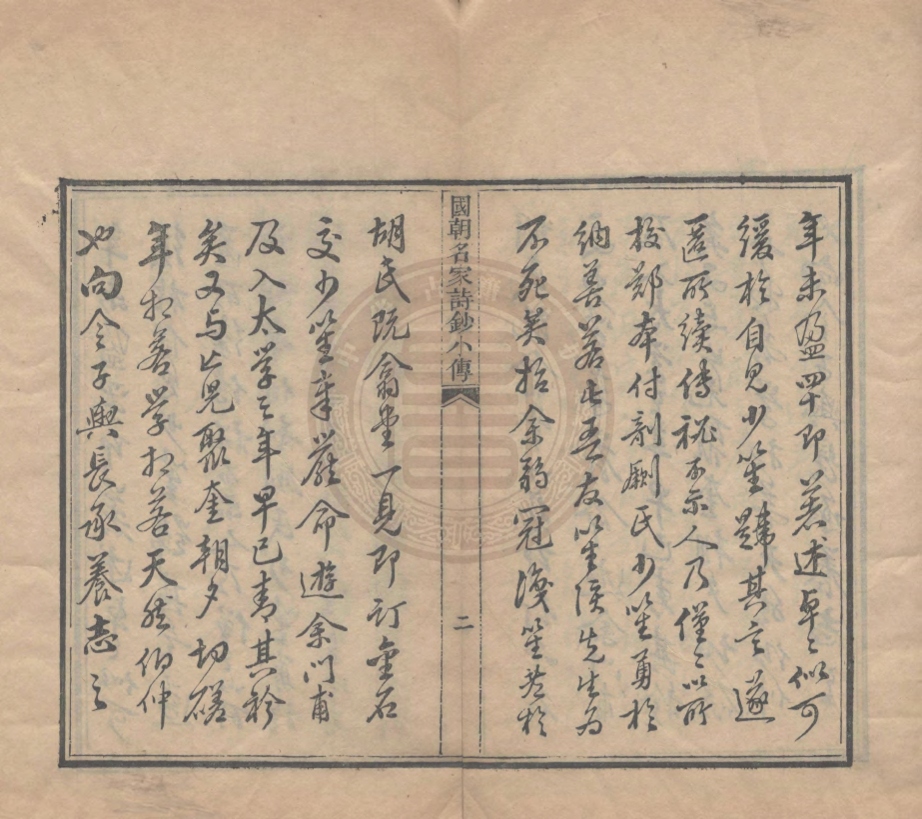 年未盈四十即著述卓卓似可
緩於自見少笙韙其言遂
匿所續傳祕不示人乃僅僅以所
校鄭本付剞劂氏少笙勇於
納善若此吾友以笙溪先生為
不死矣抑余弱冠後笙巷於
國朝名家詩鈔小傳
二
胡氏既翕堂一見即訂金石
交少笙年嚴命遊余門甫
及入太學之年早已青其衿
矣又与亡兒聚奎朝夕切磋
年相若學相若天然伯仲
也向令子與長承養志之